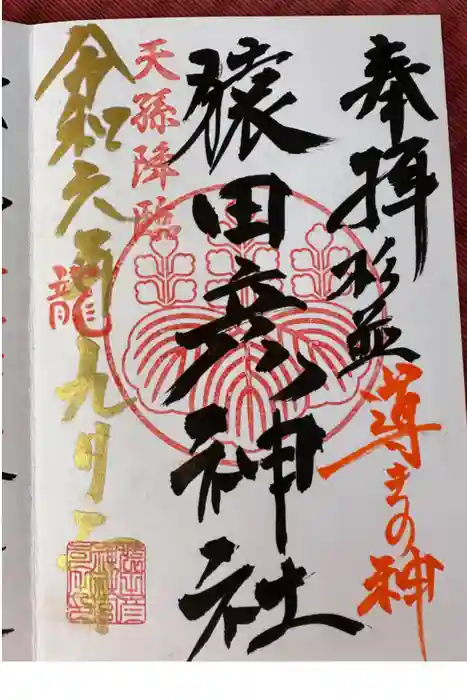 奉拝 杉並
導きの神
猿田彦神社
天孫降臨
令和六年九月二
龍